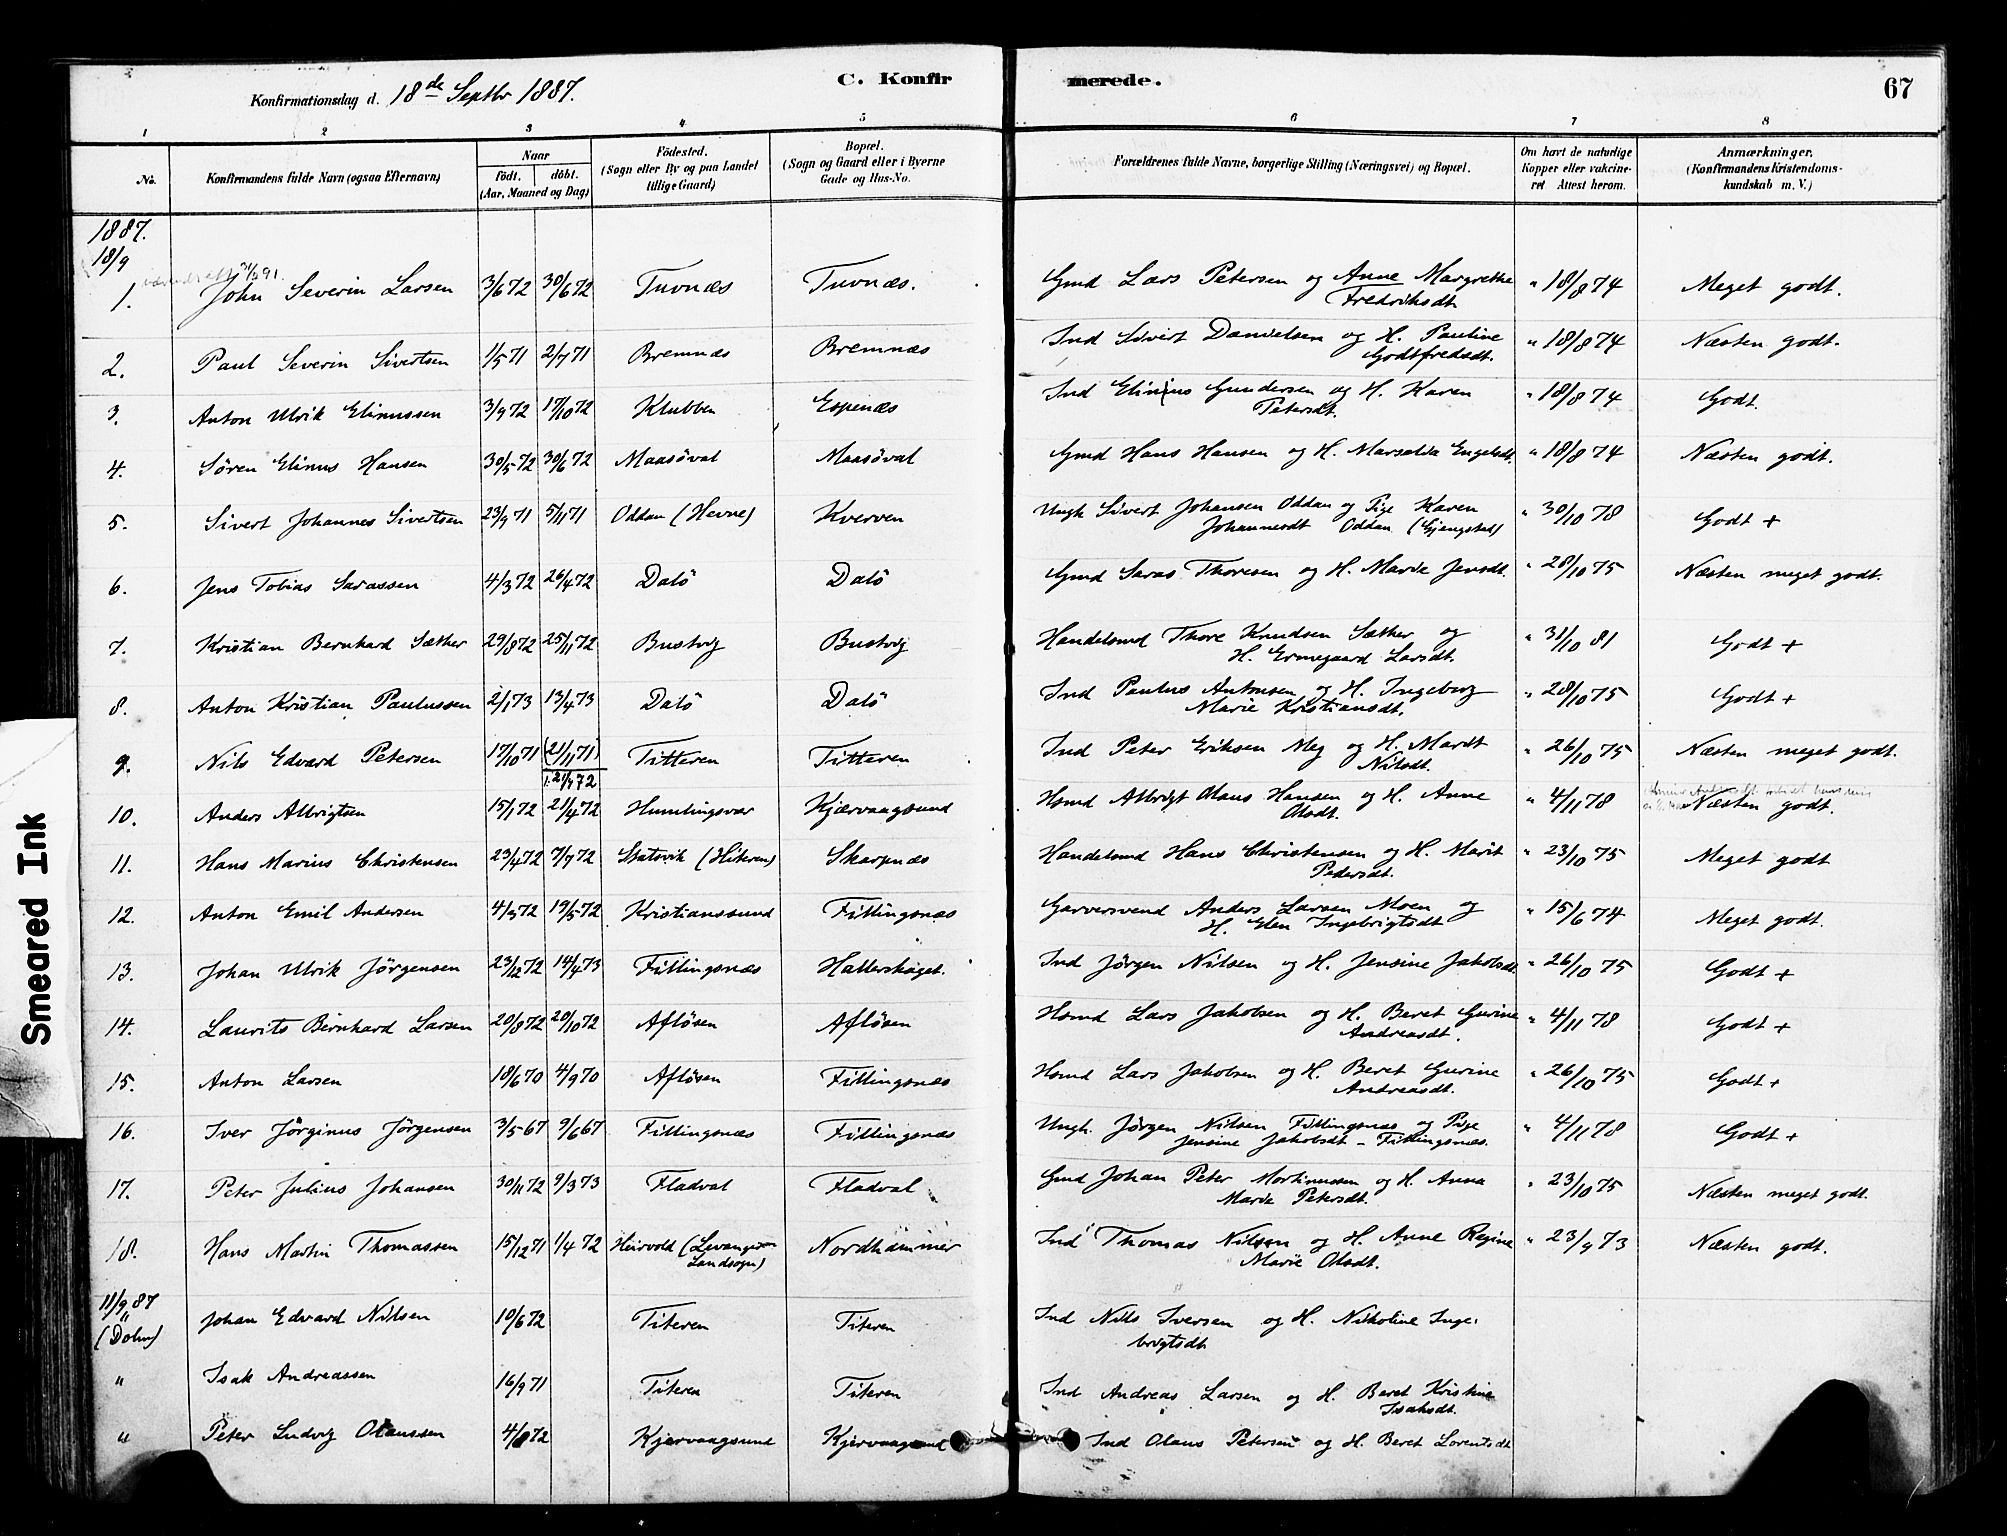 C. Konfirmerede.
67
Konfirmationsdag d. 18de Septbr 1887.
1 2 3 4 5 6 7 8
No. Konfirmandens fulde Navn (ogsaa Efternavn) Naar født. døbt. (Aar, Maaned og Dag) Födested. (Sogn eller By og paa Landet tillige Gaard) Bopæl. (Sogn og Gaard eller i Byerne Gade og Hus-No. Forældrenes fulde Navne, borgerlige Stilling (Næringsvei) og Bopæl. Om havt de naturlige Kopper eller vakcineret Attest herom. Anmærkninger. (Konfirmandens Kristendomskundskab m. V.)
1887.
18/9
1. John Severin Larsen 3/6 72 30/6 72 Tuvnæs Tuvnæs. Gmd Lars Petersen og Anne Margrethe Fredriksdt. " 18/8 74 Meget godt.
2. Paul Severin Sivertsen 1/5 71 2/7 71 Bremnæs Bremnæs Ind Sivert Danielsen og H. Pauline Godtfredsdt. " 18/8 74 Næsten godt.
3. Anton Ulrik Elinussen 3/9 72 17/10 72 Klubben Espenæs Ind Elinius Gundersen og H. Karen Petersdt. " 18/8 74 Godt.
4. Søren Elinus Hansen 30/5 72 30/6 72 Maasöval Maasöval Gmd Hans Hansen og H. Marselda Engelsdt. " 18/8 74 Næsten godt.
5. Sivert Johannes Sivertsen 23/9 71 5/11 71 Oddan (Hevne) Kverven Ungk Sivert Johansen Oddan og Pige Karen Johannesdt Oddan (Gjengstad) " 30/10 78 Godt +
6. Jens Tobias Sarassen 4/3 72 26/4 72 Dalö Dalö Gmd Saras Thoresen og H. Marie Jensdt. " 28/10 75 Næsten meget godt.
7. Kristian Bernhard Sæther 29/8 72 25/11 72 Bustvig Bustvig Handelsmd Thore Knudsen Sæther og H. Ermegaard Larsdt. " 31/10 81 Godt +
8. Anton Kristian Paulussen 2/1 73 13/4 73 Dalö Dalö Ind Paulus Antonsen og H. Ingeborg Marie Kristiansdt. " 28/10 75 Godt +
9. Nils Edvard Petersen 17/10 71 (21/11 71) 21/4 72 Titteren Titteren Ind Peter Eriksen Meg og H. Marit Nilsdt. " 26/10 75 Næsten meget godt.
10. Anders Albrigtsen 15/1 72 21/4 72 Humlingsvær Kjærvaagsund Hsmd Albrigt Olaus Hansen og H. Anne Olsdt. " 4/11 78 Næsten godt.
11. Hans Marius Christensen 23/4 72 7/7 72 Statsvik (Hiteren) Skarpnæs Handelsmd Hans Christensen og H. Marit Pedersdt. " 23/10 75 Meget godt
12. Anton Emil Andersen 4/3 72 19/5 72 Kristianssund Fillingsnæs Garversvend Anders Larsen Moen og H. Elen Ingebrigtsdt " 15/6 74 Meget godt.
13. Johan Ulrik Jörgensen 23/12 72 14/4 73 Fillingsnæs Hallershaget. Ind Jörgen Nilsen og H. Jensine Jakobsdt. " 26/10 75 Godt +
14. Laurits Bernhard Larsen 20/8 72 20/10 72 Aflösen Aflösen Hsmd Lars Jakobsen og H. Beret Gurine Andreasdt. " 4/11 78 Godt +
15. Anton Larsen 18/6 70 4/9 70 Aflösen Fillingsnæs Hsmd Lars Jakobsen og H. Beret Gurine Andreasdt. " 26/10 75 Godt +
16. Iver Jörginus Jörgensen 3/5 67 9/6 67 Fillingsnæs Fillingsnæs Ungk. Jörgen Nilsen Fillingsnæs og Pige Jensine Jakobsdt - Fillingsnæs. " 4/11 78 Godt +
17. Peter Julius Johansen 30/11 72 9/3 73 Fladval Fladval Gmd Johan Peter Mortinussen og H. Anna Marie Petersdt. " 23/10 75 Næsten meget godt.
18. Hans Martin Thomassen 15/12 71 1/4 72 Heirvold (Levanger Landsogn) Nordhammer Ind Thomas Nilsen og H. Anne Regine Marie Olsdt. " 23/9 73 Næsten godt.
11/9 87 " (Dolm) Johan Edvard Nilsen 10/6 72 Titeren Titeren Ind Nils Iversen og H. Nikoline Ingebrigtsdt
" Isak Andreassen 16/9 71 Titeren Titeren Ind Andreas Larsen og H. Beret Kristine Isaksdt.
" Peter Ludvig Olaussen 4/8 72 Kjervaagsund Kjervaagsund Ind Olaus Petersen og H. Beret Lorentsdt
Smeared Ink